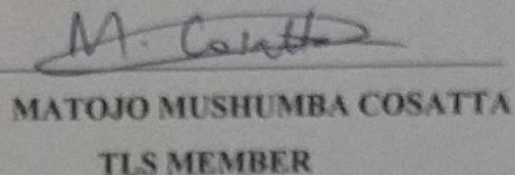 M. Cosatta
MATOJO MUSHUMBA COSATTA
TLS MEMBER